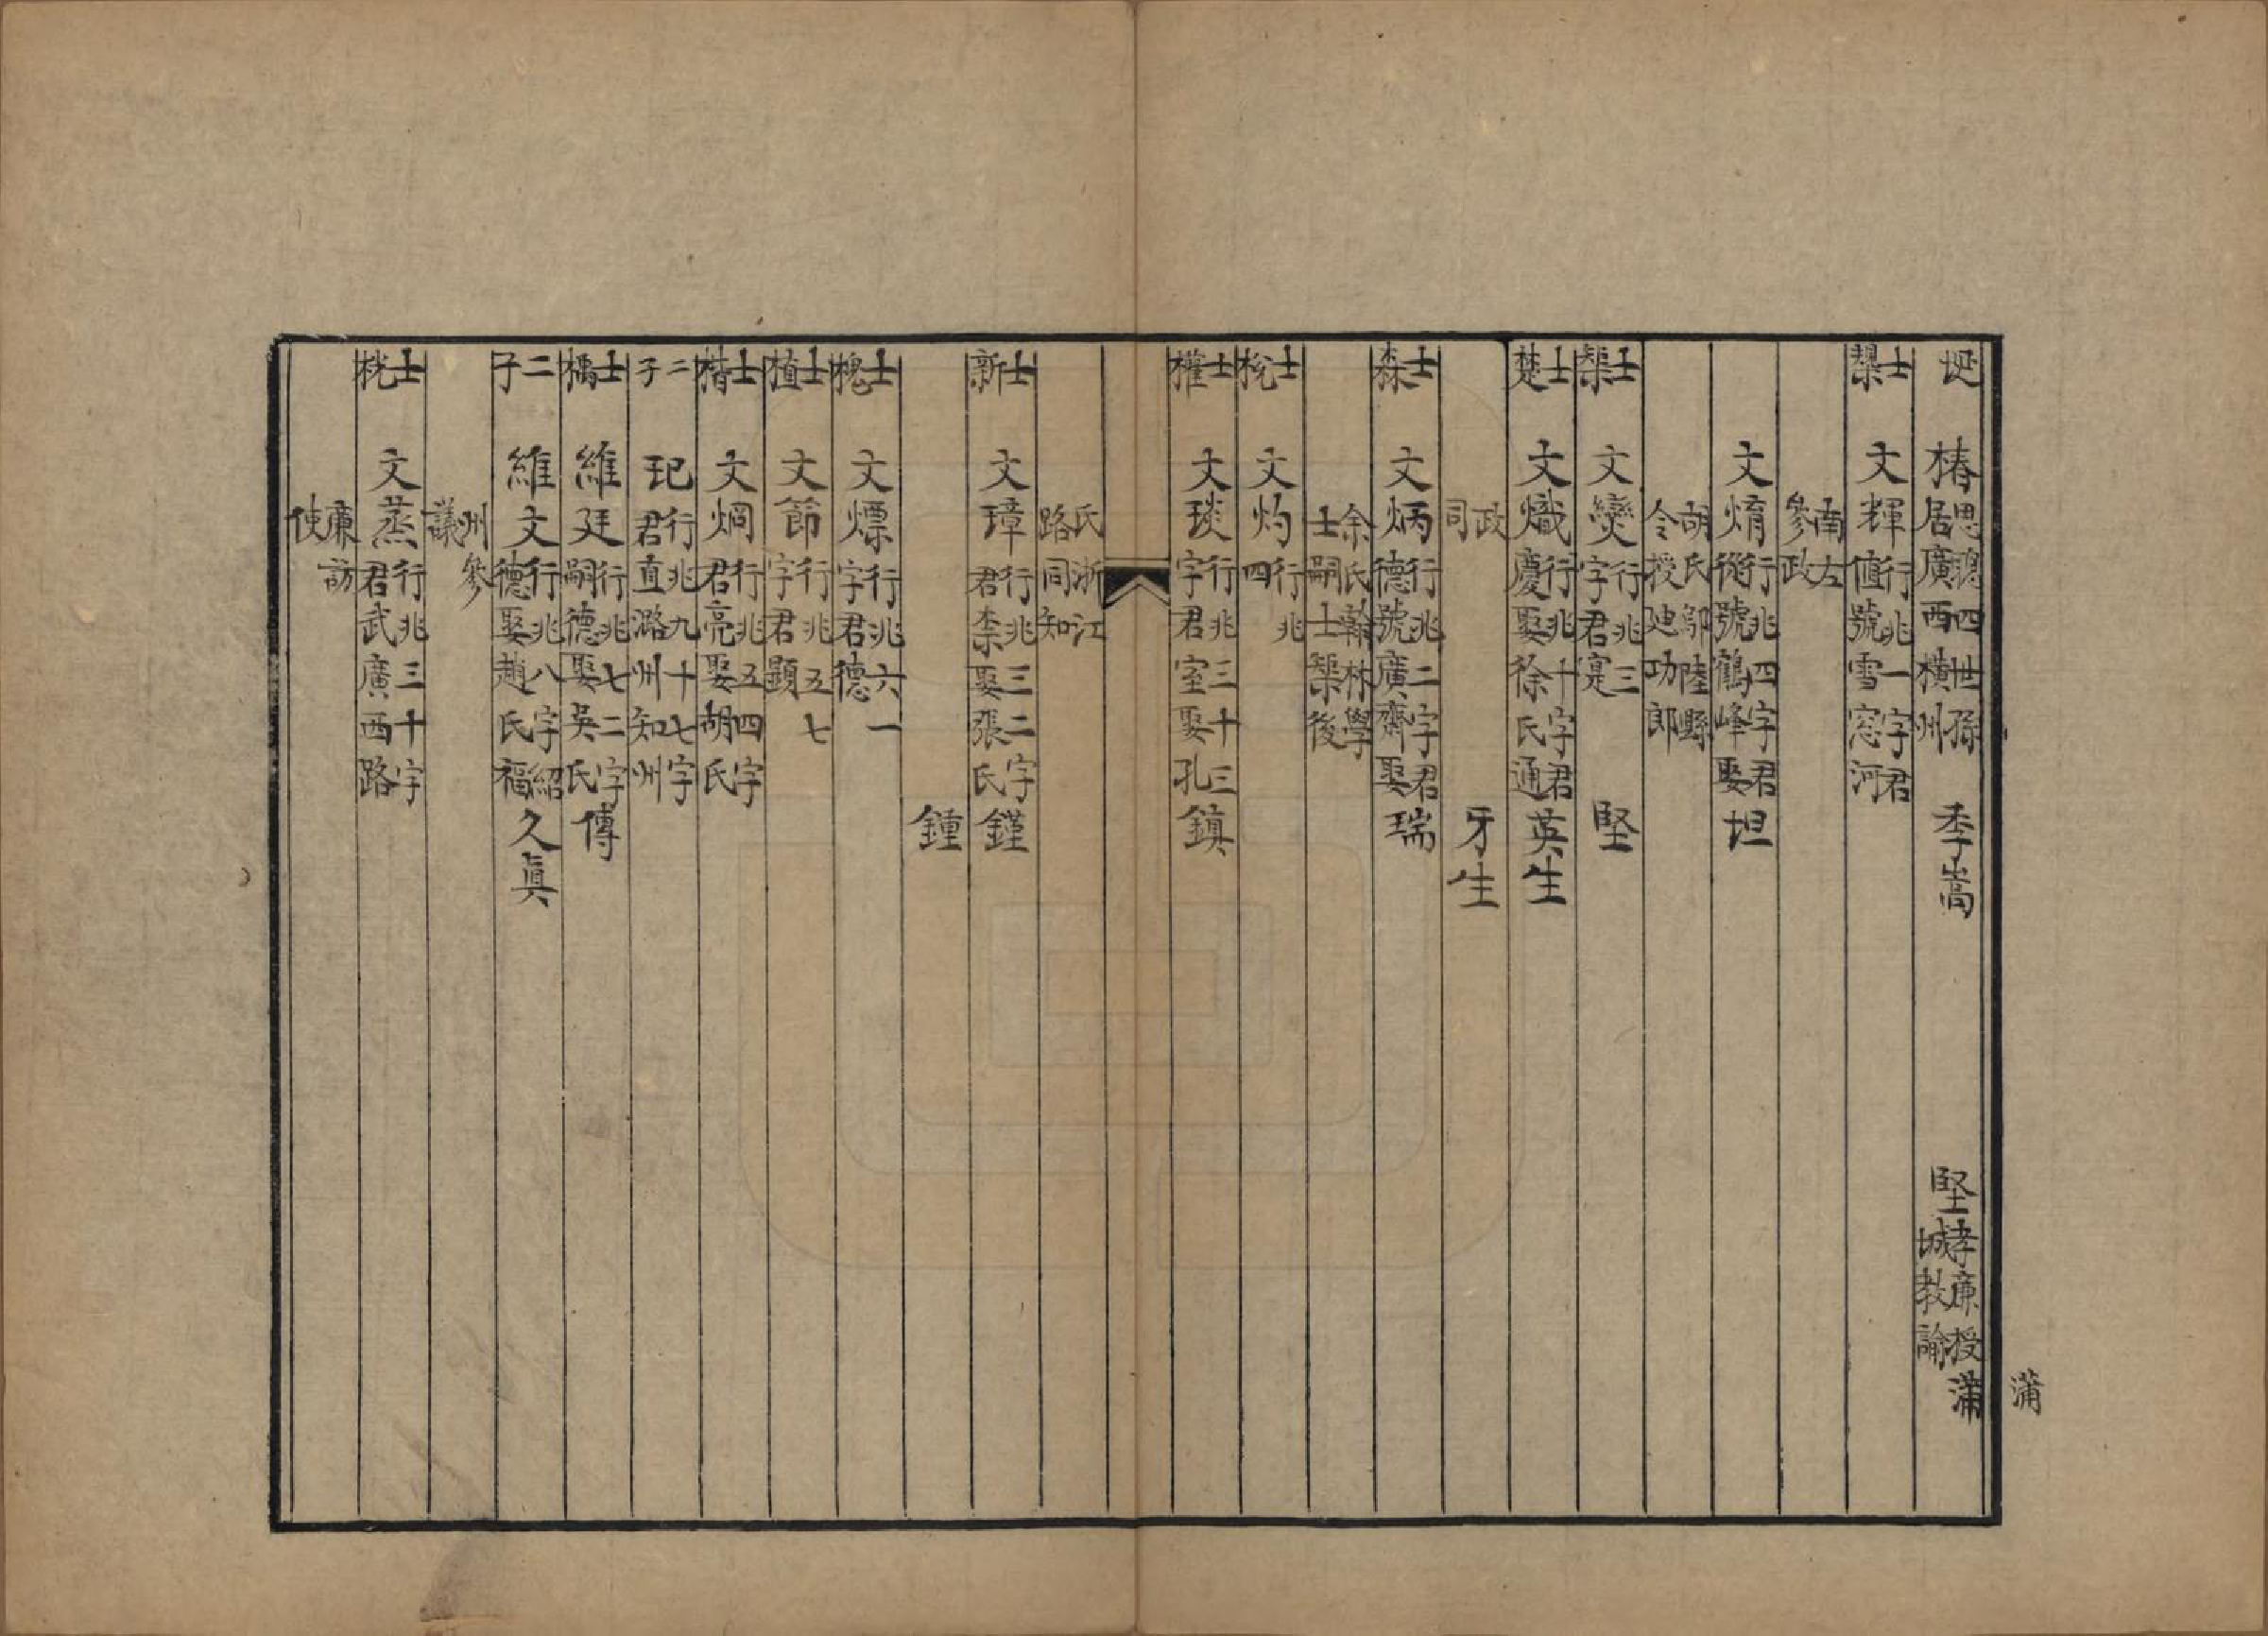 埏 椿 思聰四世孫居廣西橫州 季嵩 堅 孝廉授蒲城教諭
蒲
士槼 文輝 行兆一字君值號雪窓河
南左參政
文焴 行兆四字君從號鶴峰娶 坦
胡氏鄔陸縣令授廸功郎
士槩 文爕 行兆三字君寔 堅
士楚 文熾 行兆十字君慶娶徐氏通 英生
政司 牙生
士森 文炳 行兆二字君德號廣齋娶 瑞
余氏翰林學士嗣士槩後
士梲 文灼 行兆四
士權 文琰 行兆三十三字君室娶孔 鎮
氏浙江路同知
士新 文璋 行兆三二字君柰娶張氏 鏗
鍾
士槐 文熛 行兆六一字君德
士植 文節 行兆五七字君顯
士楷 文烱 行兆五四字君亮娶胡氏
二子 玘 行兆九十七字君直潞州知州
士橘 維廷 行兆七二字嗣德娶吳氏 傳
二子 維文 行兆八字紹德娶趙氏福 久眞
州參議
士桄 文烝 行兆三十字君武廣西路
廉訪使